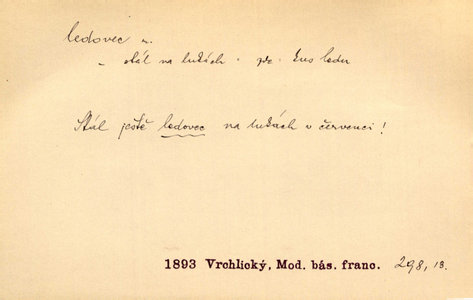 ledovec m.
– stál na lukách. př. kus ledu
Stál ještě ledovec na lukách v červenci!
1893 Vrchlický, Mod. bás. franc. 298, 13.